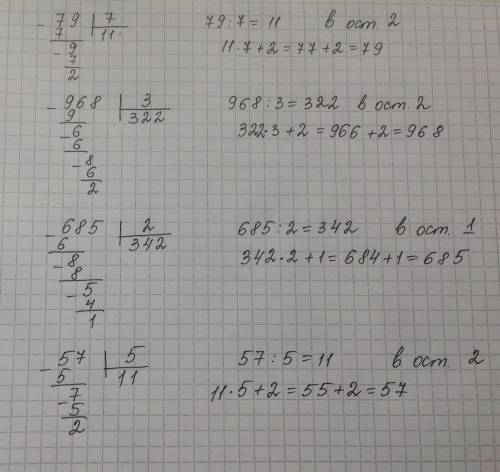 - 79 | 7 79 : 7 = 11 в ост. 2
7 11 11 · 7 + 2 = 77 + 2 = 79
- 9
7
2
- 968 | 3 968 : 3 = 322 в ост. 2
9 322 322 · 3 + 2 = 966 + 2 = 968
- 6
6
- 8
6
2
- 685 | 2 685 : 2 = 342 в ост. 1
6 342 342 · 2 + 1 = 684 + 1 = 685
- 8
8
- 5
4
1
- 57 | 5 57 : 5 = 11 в ост. 2
5 11 11 · 5 + 2 = 55 + 2 = 57
- 7
5
2